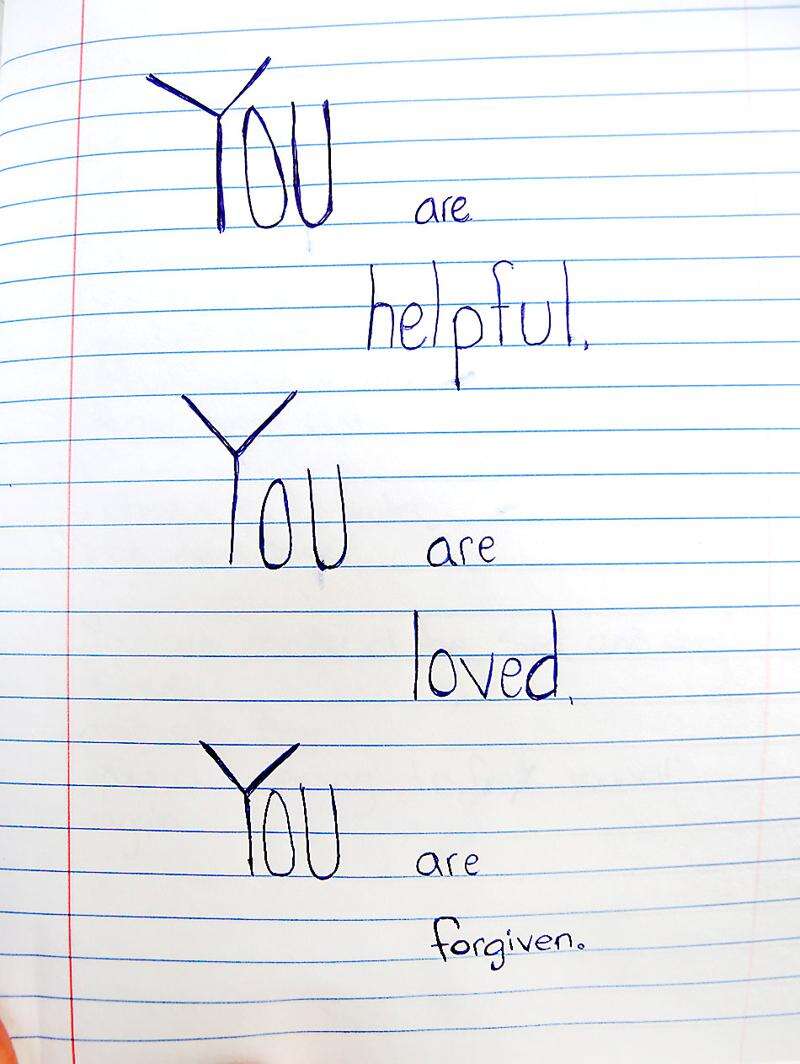 YOU are
helpful.
YOU are
loved.
YOU are
forgiven.